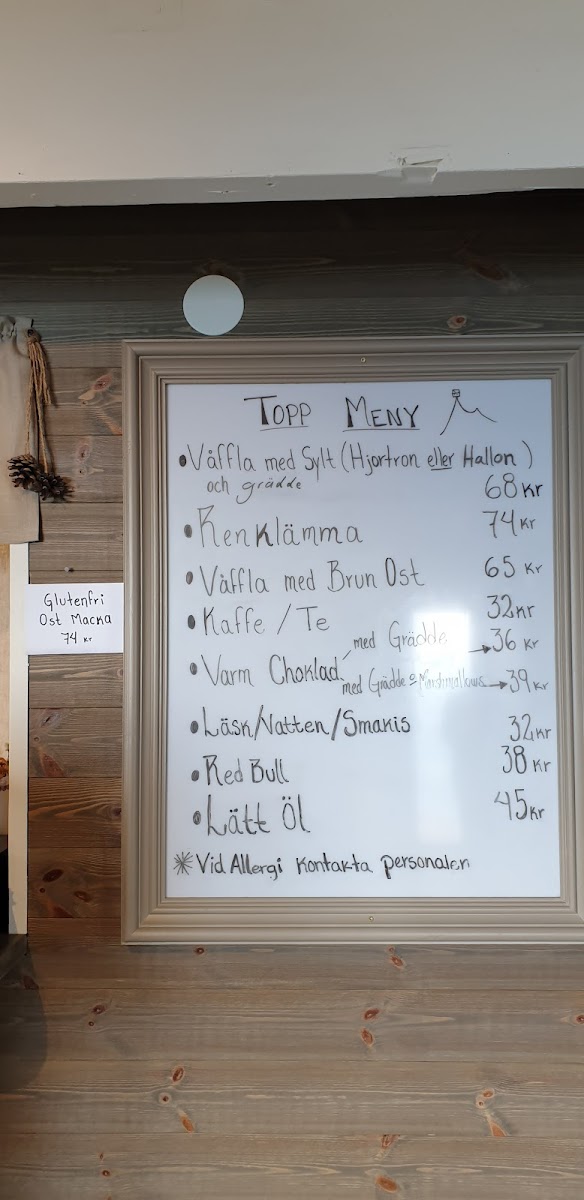 TOPP MENY
• Våffla med Sylt (Hjortron eller Hallon)
och grädde 68 Kr
• Renklämma 74 Kr
• Våffla med Brun Ost 65 Kr
• Kaffe / Te 32 Kr
med Grädde → 36 Kr
• Varm Choklad
med Grädde o Marshmallows → 39 Kr
• Läsk/Vatten/Smakis 32 Kr
• Red Bull 38 Kr
• Lätt Öl 45 Kr
* Vid Allergi Kontakta personalen
Glutenfri
Ost Macka
74 Kr